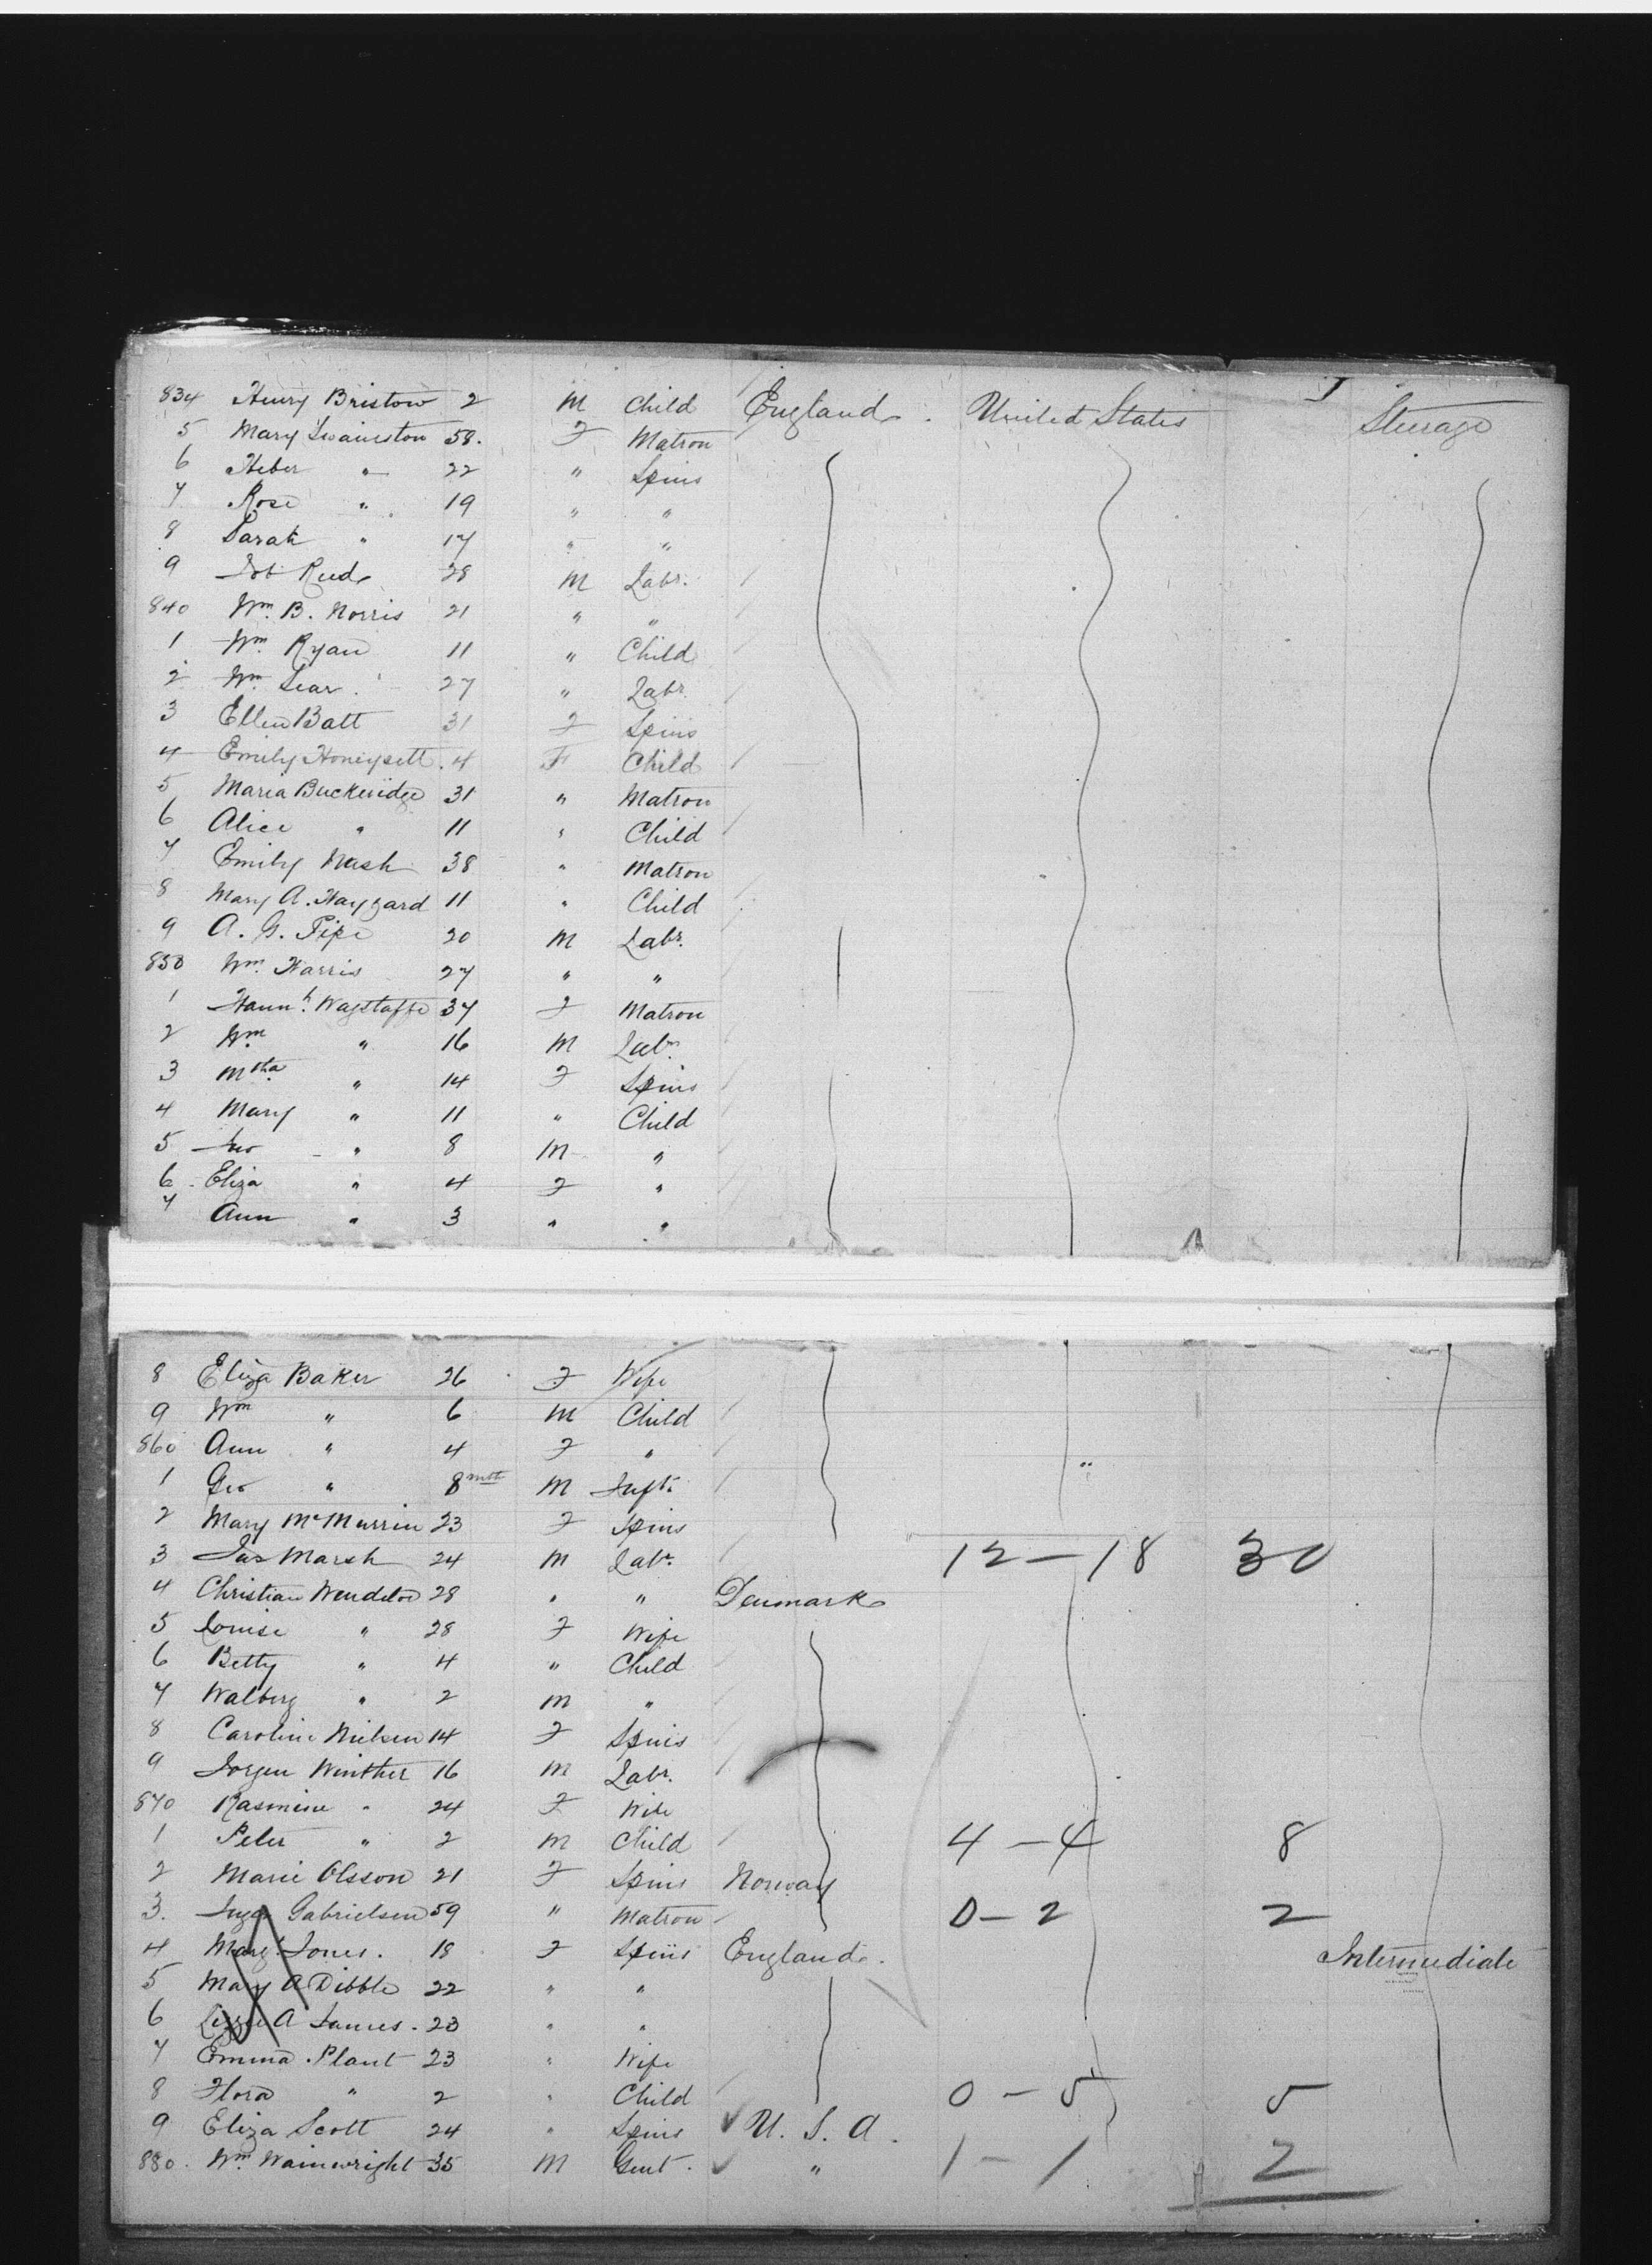 834 Henry Bristow 2 M Child England. United States Steerage
5 Mary Swainston 58. F Matron
6 Heber " 22 " Spins
7 Rose " 19 " "
8 Sarah " 17 " "
9 Job Reed 28 M Labr.
840 Wm. B. Norris 21 " "
1 Wm. Ryan 11 " Child
2 Wm. Lear. 27 " Labr.
3 Ellen Batt 31 F Spins
4 Emily Honeysett. 4 F Child
5 Maria Buckeridge 31 " Matron
6 Alice " 11 " Child
7 Emily Nash 38 " Matron
8 Mary A. Haygard 11 " Child
9 A. G. Pipe 20 M Labr.
850 Wm. Harris 27 " "
1 Hannh. Wagstaffe 37 F Matron
2 Wm " 16 M Labr.
3 Mtha " 14 F Spins
4 Mary " 11 " Child
5 " 8 M "
6 Eliza " 4 F "
7 Ann " 3 " "
8 Eliza Baker 26 F Wife
9 Wm " 6 M Child
860 Ann " 4 F "
1 Geo " 8 mth M Inft.
2 Mary McMurrin 23 F Spins
3 Jas Marsh 24 M Labr. 12 - 18 30
4 Christian 28 " " Denmark
5 Louise " 28 F Wife
6 Betty " 4 " Child
7 Walberg " 2 M "
8 Caroline Nielsen 14 F Spins
9 Jorgen Winther 16 M Labr.
870 Rasmine " 24 F Wife
1 Peter " 2 M Child 4 - 4 8
2 Marie Olsson 21 F Spins Norway
3. Gabrielsen 59 " Matron 0 - 2 2
4 Margt. Jones. 18 F Spins England. Intermediate
5 Mary A Dibble 22 " "
6 Lizzie A James. 23 " "
7 Emma Plant 23 " Wife
8 Flora " 2 " Child 0 - 5 5
9 Eliza Scott 24 " Spins U. S. A.
880. Wm. Wainwright 35 M Gent. " 1 - 1 2